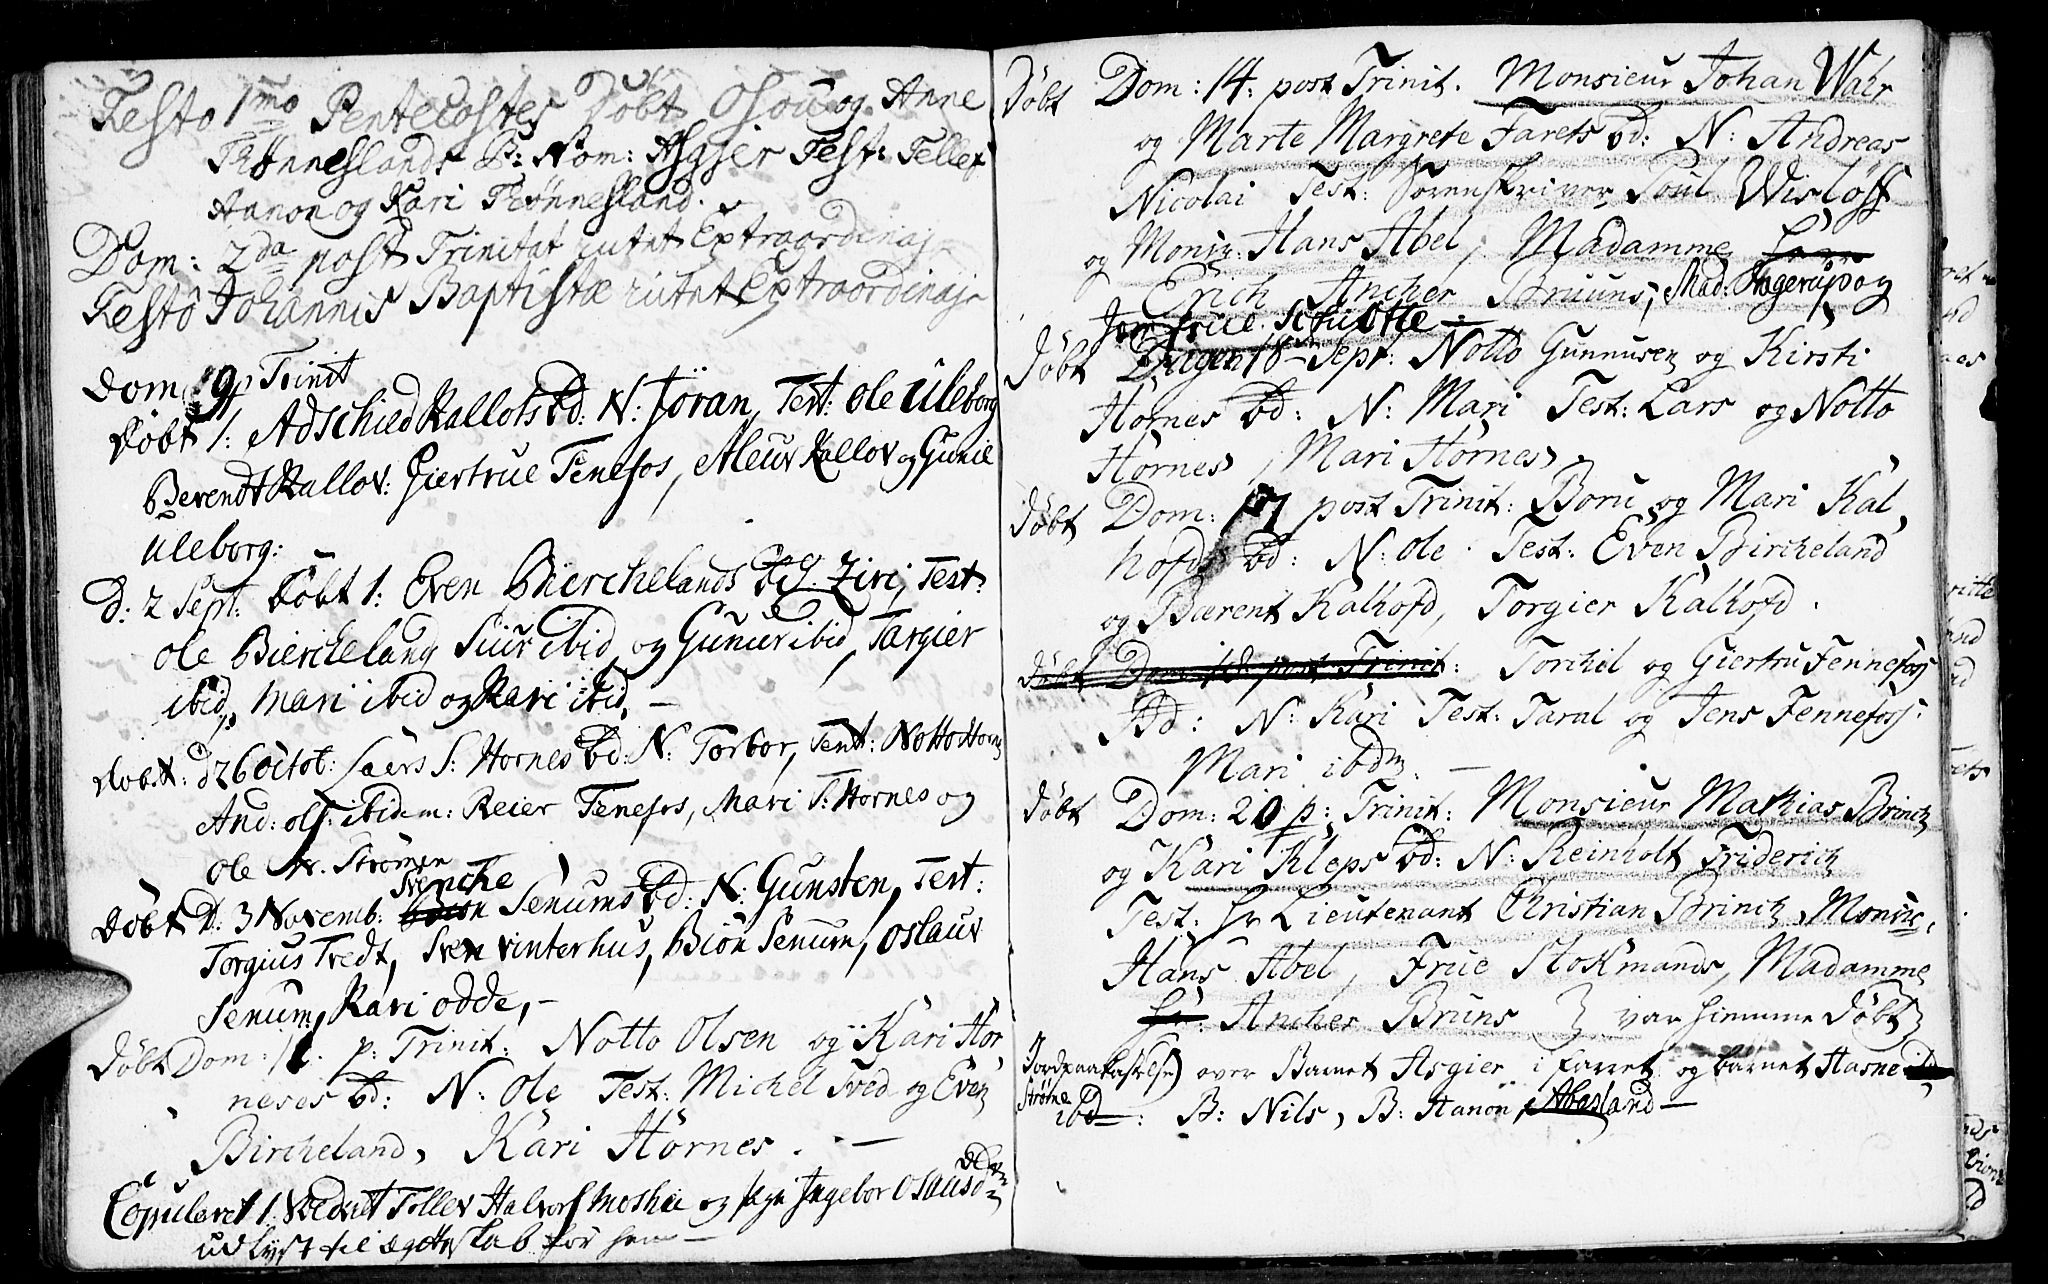 Festo 1mo Pentecostes Döbt Osou og Anne
Thönneslands B: Nom: Asgier Test: Tellef
Aanon og Kari Thönnesland.
Dom: 2da post Trinitat intet Extraordinair
Festo Johannis Baptistæ intet Extraordinair
Dom 9 p Trinit
Döbt 1: Adschied Kallofs bd: N: Jöran, Test: Ole Uleborg
Berendt Kallov: Giertrue Fenefos, Aleuv Kallov og Gunil
Uleborg:
D: 2 Sept: Döbt 1: Even Bierchelands bd: Ziri, Test:
Ole Biercheland Siur ibid, og Gunur ibid, Targier
ibid, Mari ibid og Kari ibid, —
Dobt: d 26 Octob: Laers S: Hornes bd: N: Torbor, Test: Notto Horns
And: Ols: ibidem: Reier Fenefos, Mari T: Hornes og
Ole Strömen
Svenche
Döbt D: 3 Novemb: Senums bd: N: Gunsten, Test:
Torgius Tvedt, Sven Vinterhus, Biön Senum, Oslauv
Senum, Kari Odde, —
Döbt Dom: p: Trinit: Notto Olsen og Kari Hör,
neses bd: N: Ole Test: Michel Tved og Even
Bircheland, Kari Hörnes. —
Copuleret 1. Tellev Halvors Moshei og Ingebor Osousd
udlyst til ægteskab for
Döbt Dom: 14: post Trinit. Monsieur Johan Wahr
og Marte Margrete Farets bd: N: Andreas
Nicolai Test: Sorenskriver Poul Wislöff
og Monsr: Hans Abel, Madamme
Erich Ancher Bruuns, Mad: Hagerup og
Jomfrue Schiötte
Döbt Dagen 18 Sept: Notto Gunnusen og Kirsti
Hörnes bd: N: Mari Test: Lars og Notto
Hörnes, Mari Hörnes.
Döbt Dom: 17 post Trinit: Boru og Mari Kal,
hofds bd: N: Ole. Test: Even Bircheland
og Bærent Kalhofd, Torgier Kalhofd.
Döbt Dom 18 post Trinit: Torchil og Giertru Fennefoss
Bd: N: Kari Test: Taral og Jens Fennefoss:
Mari ibdm. —
Döbt Dom: 20 p: Trinit: Monsieur Mathias Brinck
og Kari Kleps bd: N: Reinholt Friderich
Test: Hr Lieutenant Christian Brinck, Monsr:
Hans Abel, Frue Stokmands, Madamme
Hr: Ancher Bruns } var hiemme Döbt }
Jordpaakastelse) over Barnet Asgier i farret og barnet Hasne
Ströme
ibd: B: Nils, B: Hanon, Abesland —